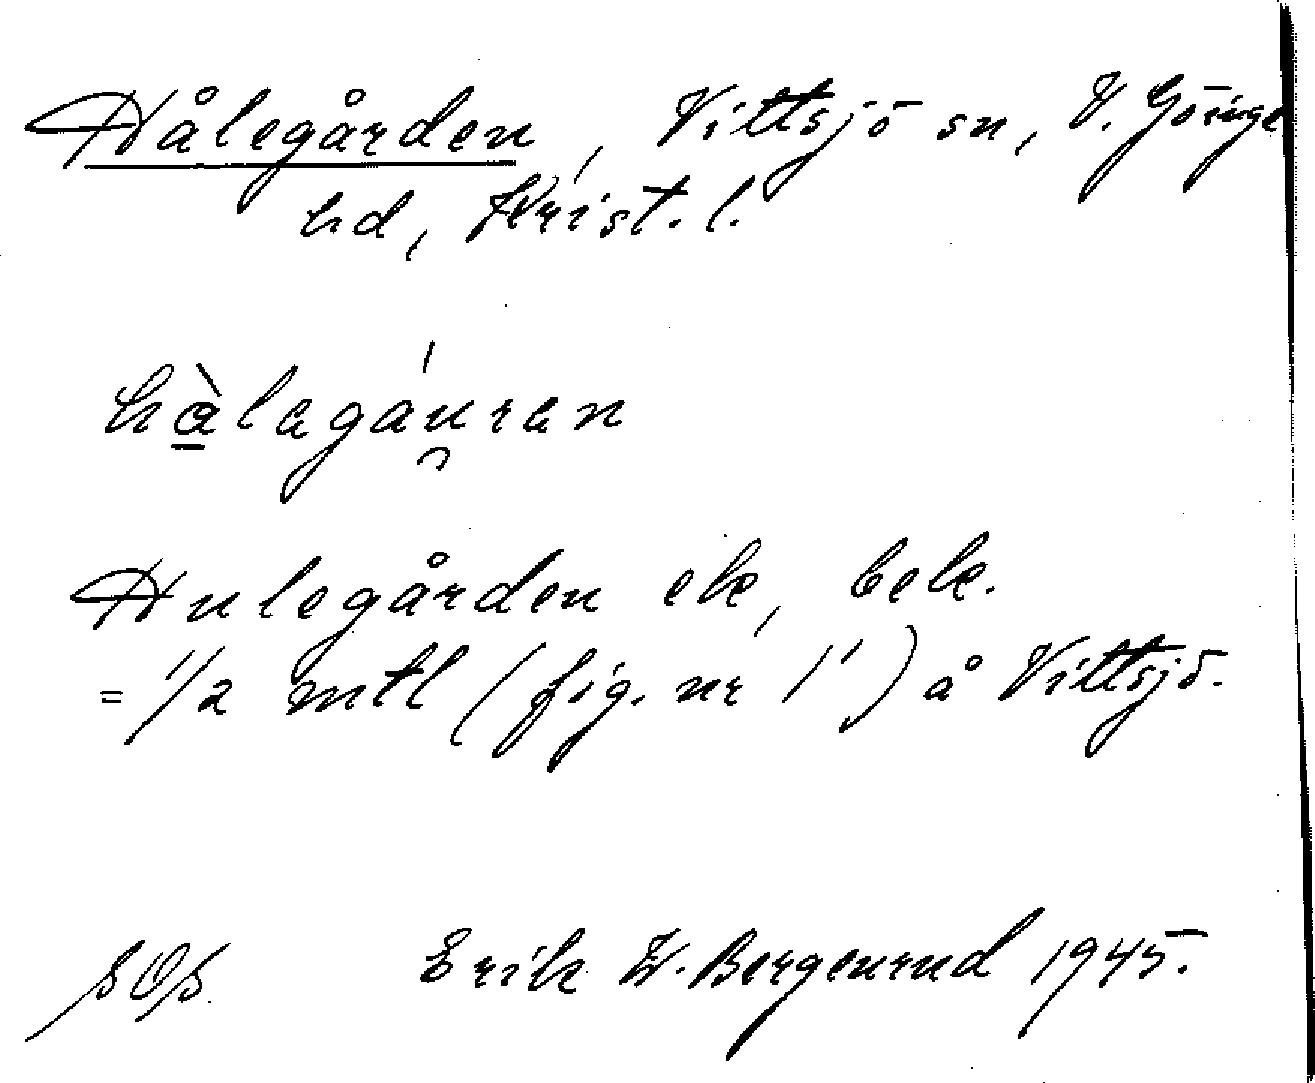 Hålegården, Vittsjö sn, V. Göinge
hd, Krist. l.
hàlagáuran
Hulegården ek, bek.
= 1/2 mtl (fig. nr 1') å Vittsjö.
SOS. Erik W. Bergenrud 1945.